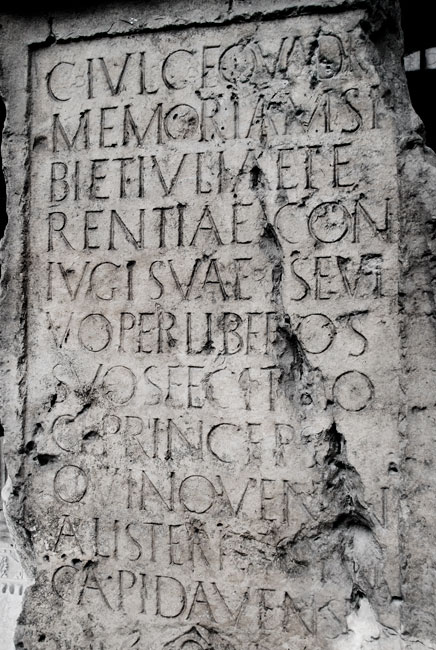 C IVL C F QVADR
MEMORIAM SI
BI ET IVLIAE TE
RENTIAE CON
IVGI SVAE SE VI
VO PER LIBEROS
SVOS FECIT
PRINCEPS
QVINQVENN
ALIS TERR
CAPIDAVENS